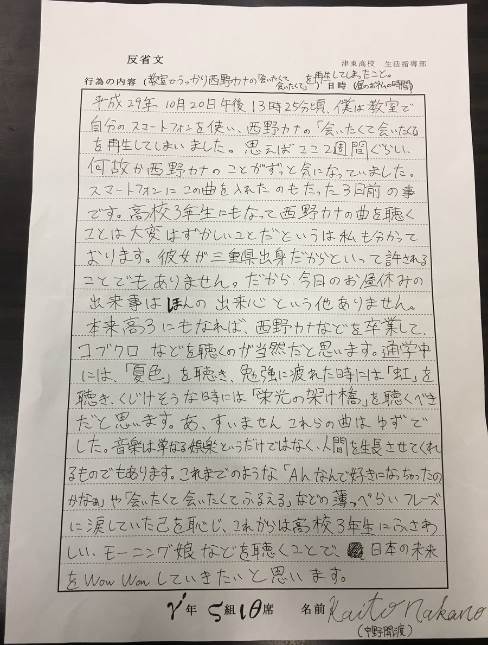 反省文
津東高校 生活指導部
行為の内容(教室でうっかり西野カナの「会いたくて会いたくて」を再生してしまったこと。) 日時(昼のお休みの時間)
平成29年10月20日午後13時25分頃、僕は教室で
自分のスマートフォンを使い、西野カナの「会いたくて会いたくて」
を再生してしまいました。思えばここ2週間ぐらい、
何故か西野カナのことがずっと気になっていました。
スマートフォンにこの曲を入れたのもたった3日前の事
です。高校3年生にもなって西野カナの曲を聴く
ことは大変はずかしいことだというは私も分かって
おります。彼女が三重県出身だからといって許される
ことでもありません。だから今日のお昼休みの
出来事はほんの出来心という他ありません。
本来高3にもなれば、西野カナなどを卒業して、
コブクロなどを聴くのが当然だと思います。通学中
には、「夏色」を聴き、勉強に疲れた時には「虹」を
聴き、くじけそうな時には「栄光の架け橋」を聴くべき
だと思います。あ、すいませんこれらの曲はゆずで
した。音楽は単なる娯楽というだけではなく、人間を生長させてくれ
るものでもあります。これまでのような「Ahなんで好きになっちゃったの
かなぁ」や「会いたくて会いたくてふるえる」などの薄っぺらいフレーズ
に涙していた己を恥じ、これからは高校3年生にふさわ
しい、モーニング娘などを聴くことで、日本の未来
をWow Wowしていきたいと思います。
年 組 席 名前 Kaito Nakano
(中野開渡)